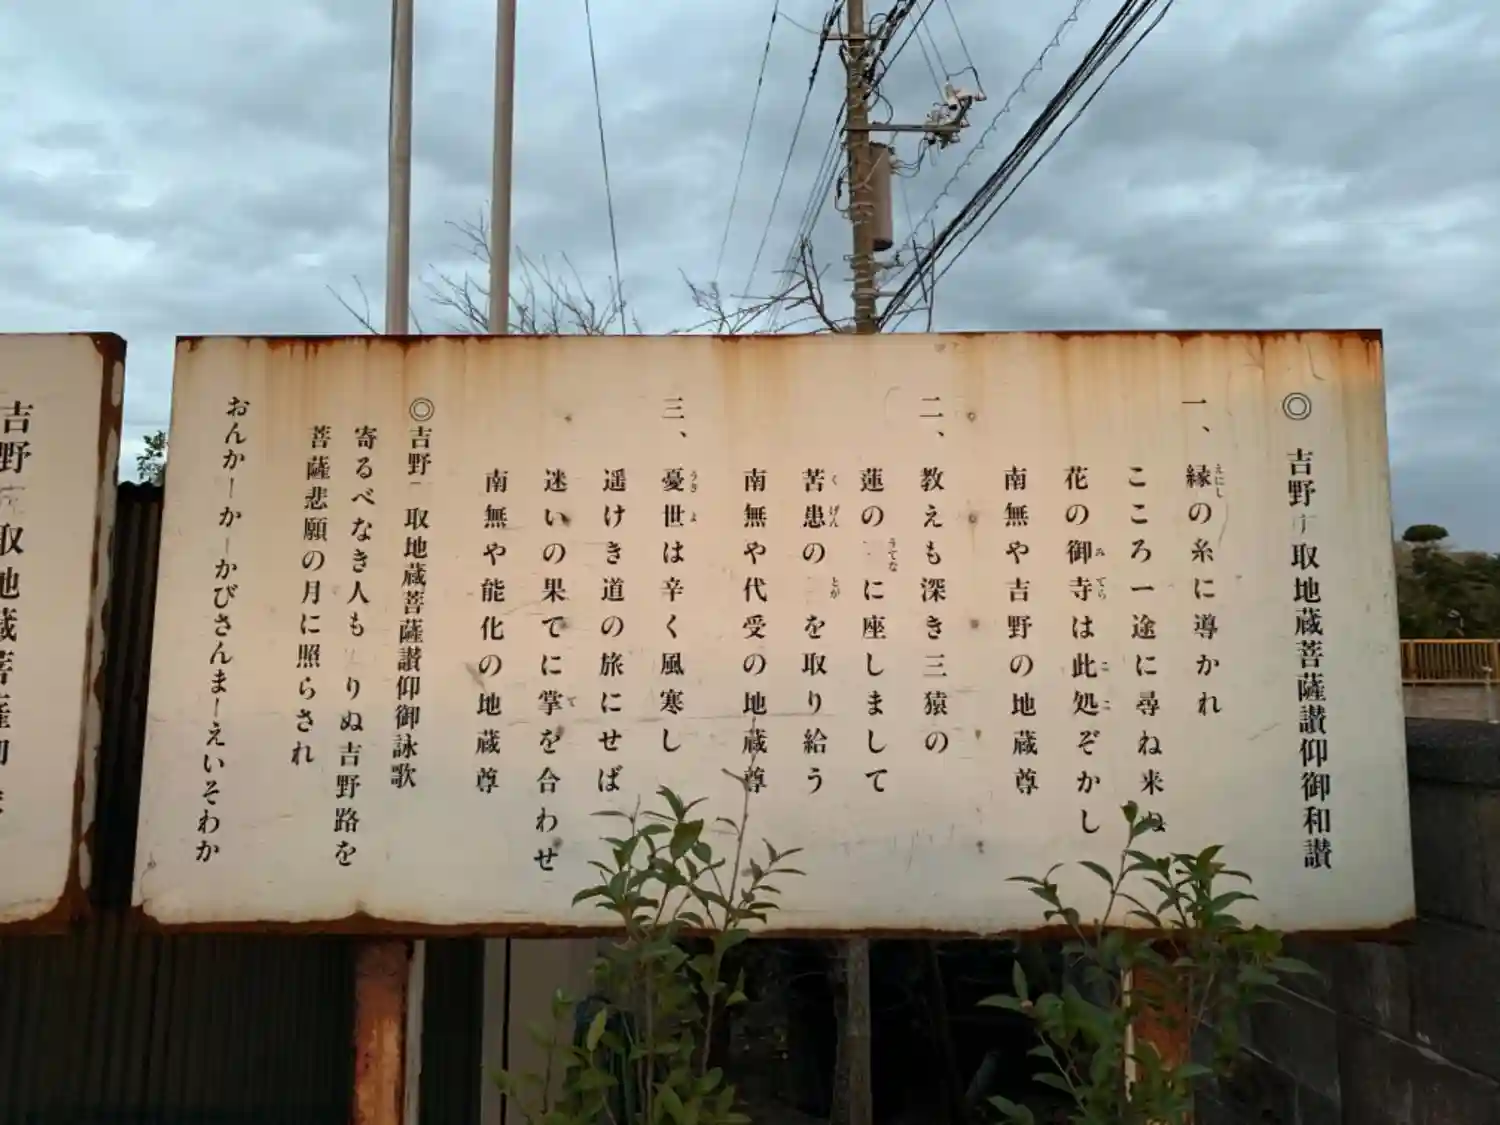 ◎ 吉野 取地蔵菩薩讃仰御和讃
一、縁の糸に導かれ
えにし
こころ一途に尋ね来ぬ
花の御寺は此処ぞかし
みてら
ここ
南無や吉野の地蔵尊
二、教えも深き三猿の
蓮の に座しまして
うてな
苦患の を取り給う
くげん
とが
南無や代受の地蔵尊
三、憂世は辛く風寒し
うきよ
遥けき道の旅にせば
迷いの果てに掌を合わせ
て
南無や能化の地蔵尊
◎吉野 取地蔵菩薩讃仰御詠歌
寄るべなき人も りぬ吉野路を
菩薩悲願の月に照らされ
おんかーかーかびさんまーえいそわか
吉野 取地蔵菩薩